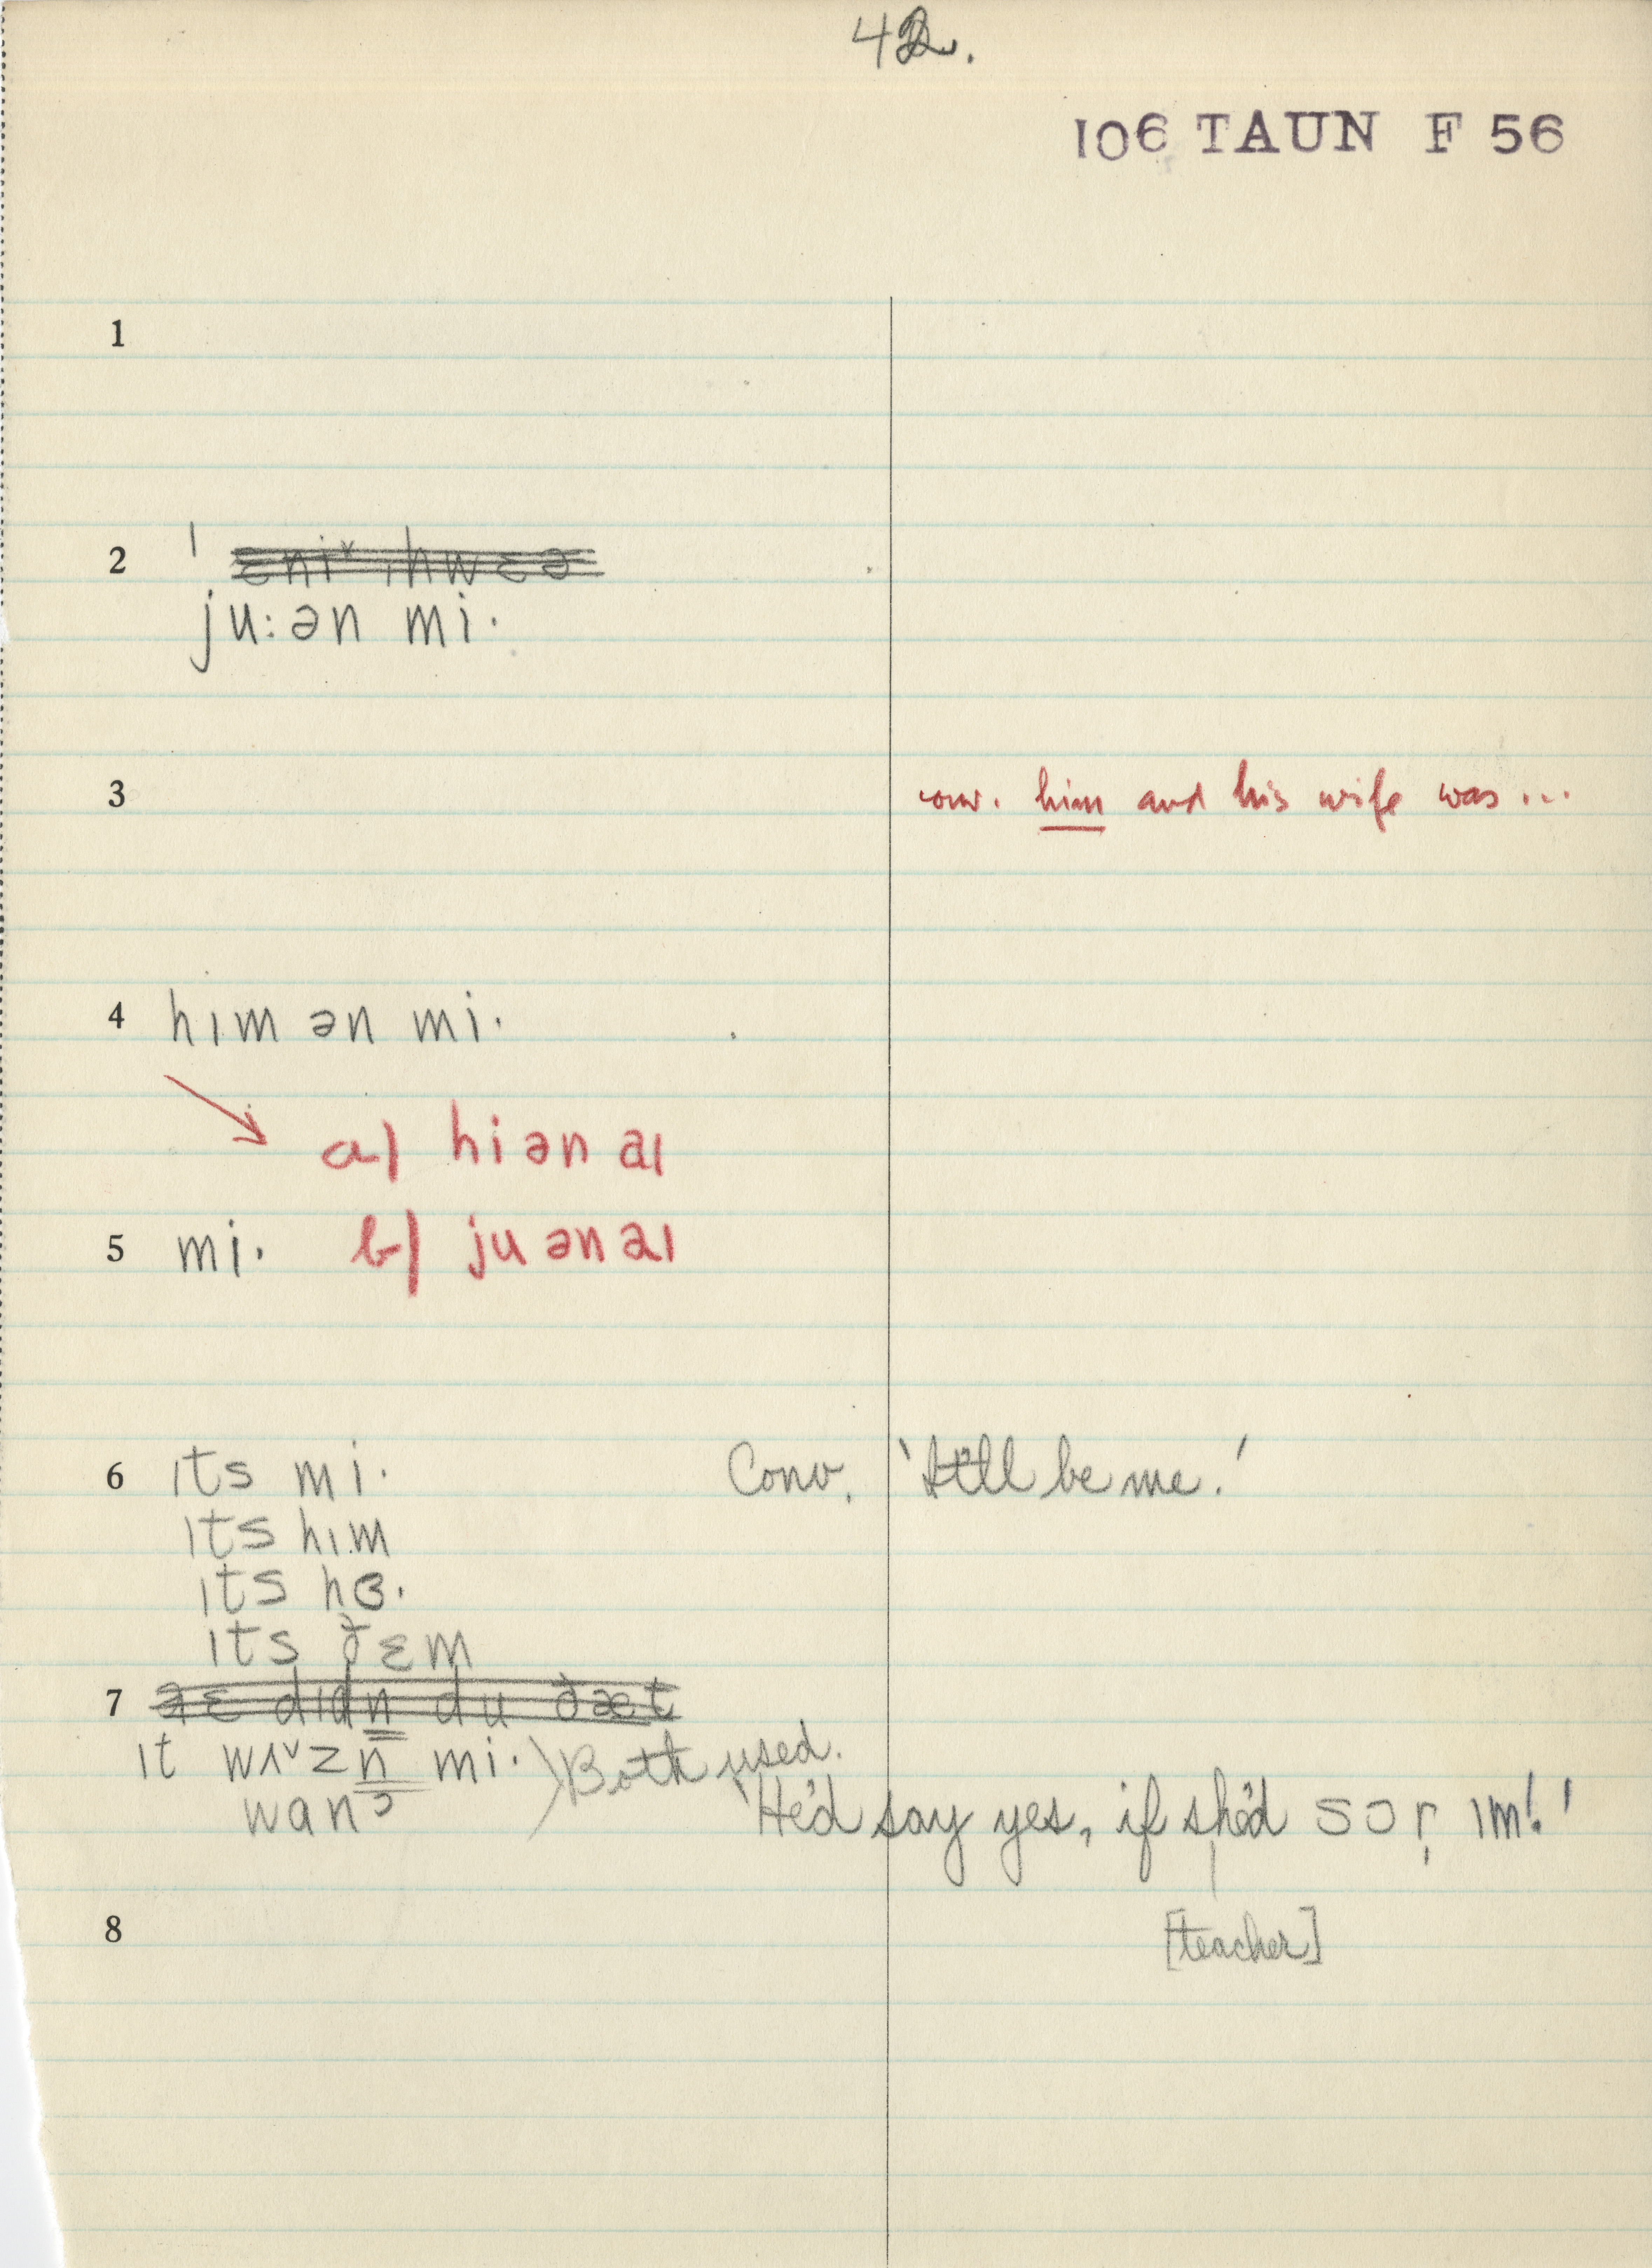 42.
106 TAUN F 56
1
2
ju:ən mi·
3 conv. him and his wife was...
4 hɪm ən mi·
a) hi ən aɪ
5 mi· b) ju ən aɪ
6 ɪts mi· Conv. 'It'll be me.'
ɪts hɪm
ɪts hɜ·
ɪts ðɛm
7
ɪt wʌ˅zn̩ mi· ) Both used.
wan 'He'd say yes, if she'd sɔr ɪm!'
8 [teacher]